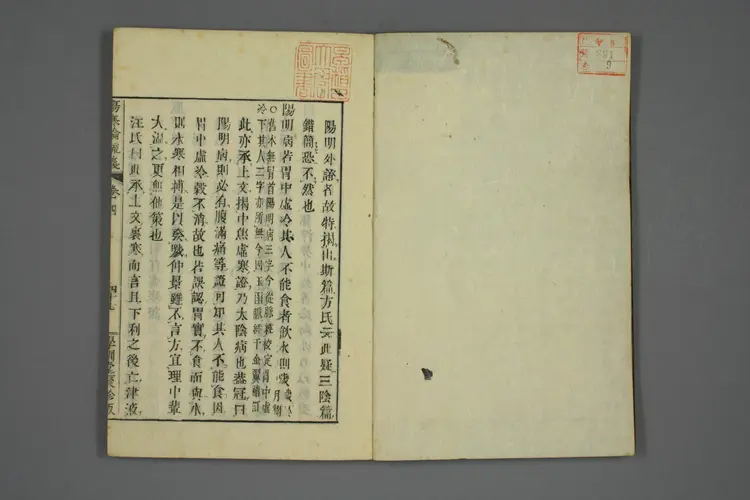 陽明外證者故特揭出斯篇方氏云此疑三陰篇
錯簡恐不然也
陽明病若胃中虛冷其人不能食者飲水則噦
冷下其人二字亦所無今因
此亦承上文揭中焦虛寒證乃太陰病也蓋冠曰
陽明病則必有腹滿痛等證可知其人不能食因
胃中虛冷穀不消故也若誤認胃實不食而與水
則水寒相搏是以發噦仲景雖不言方宜理中輩
大溫之更無他策也
汪氏曰此承上文裏寒而言且下利之後亡津液
傷寒論疏義
卷四
早稻田大學圖書